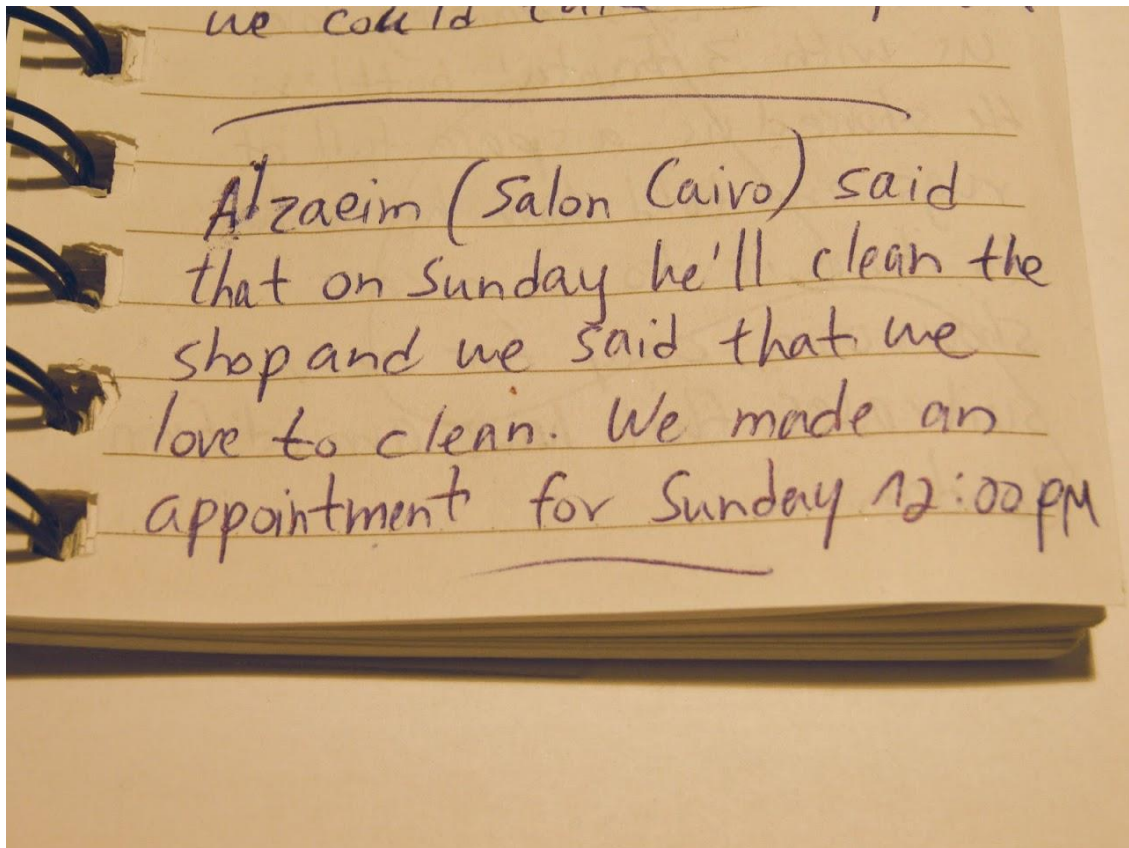 we could
Alzaeim (Salon Cairo) said
that on Sunday he'll clean the
shop and we said that we
love to clean. We made an
appointment for Sunday 12:00 PM